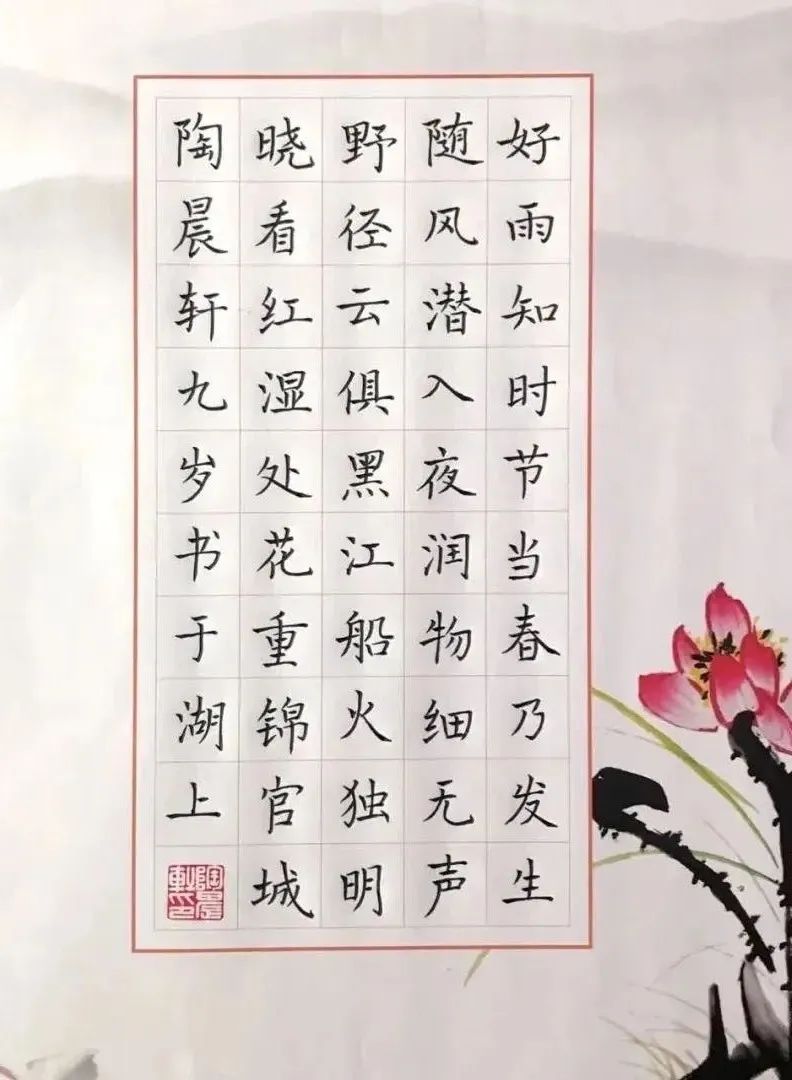 好雨知时节当春乃发生
随风潜入夜润物细无声
野径云俱黑江船火独明
晓看红湿处花重锦官城
陶晨轩九岁书于湖上
陶晨轩印